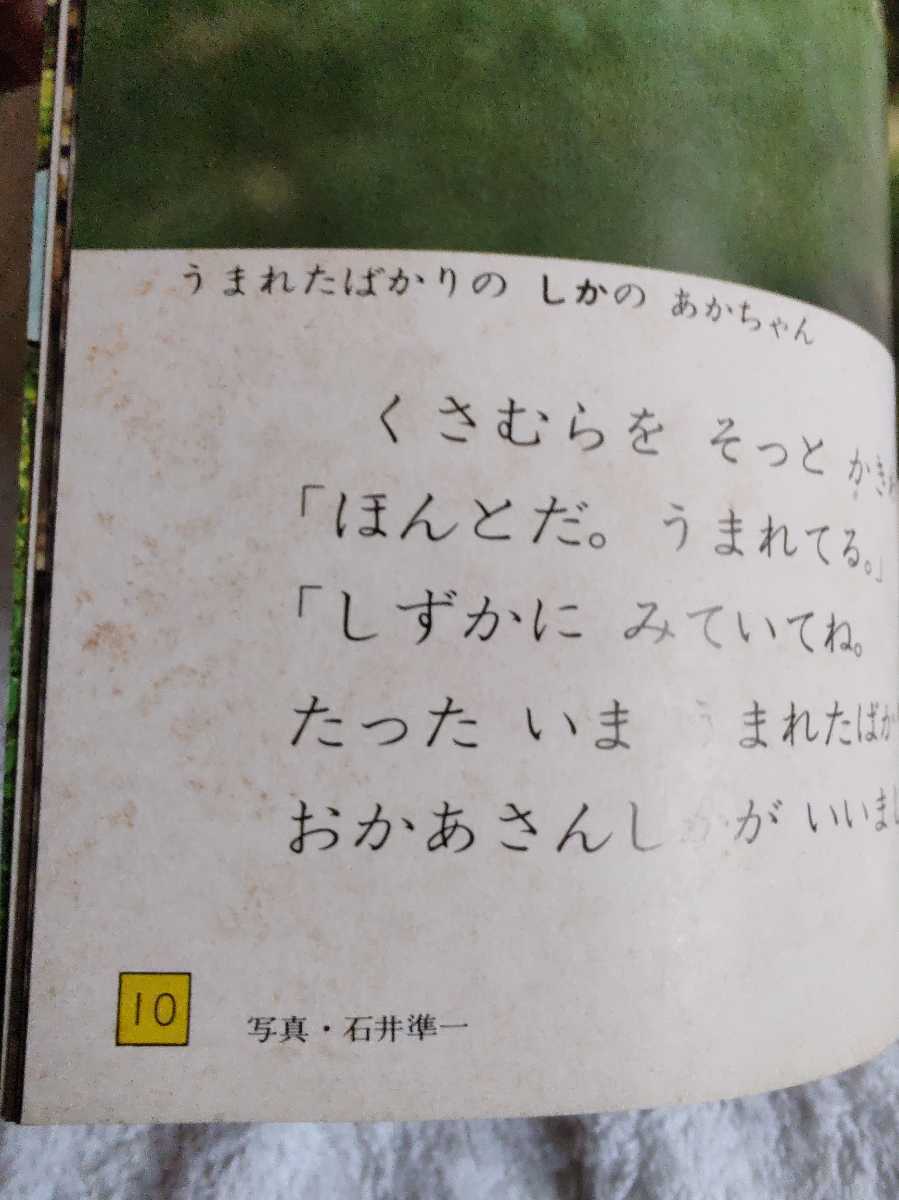 うまれたばかりの しかの あかちゃん
くさむらを そっと かき
「ほんとだ。 うまれてる。」
「しずかに みていてね。
たった いま うまれたばか
おかあさんしかが いいまし
10
写真・石井準一